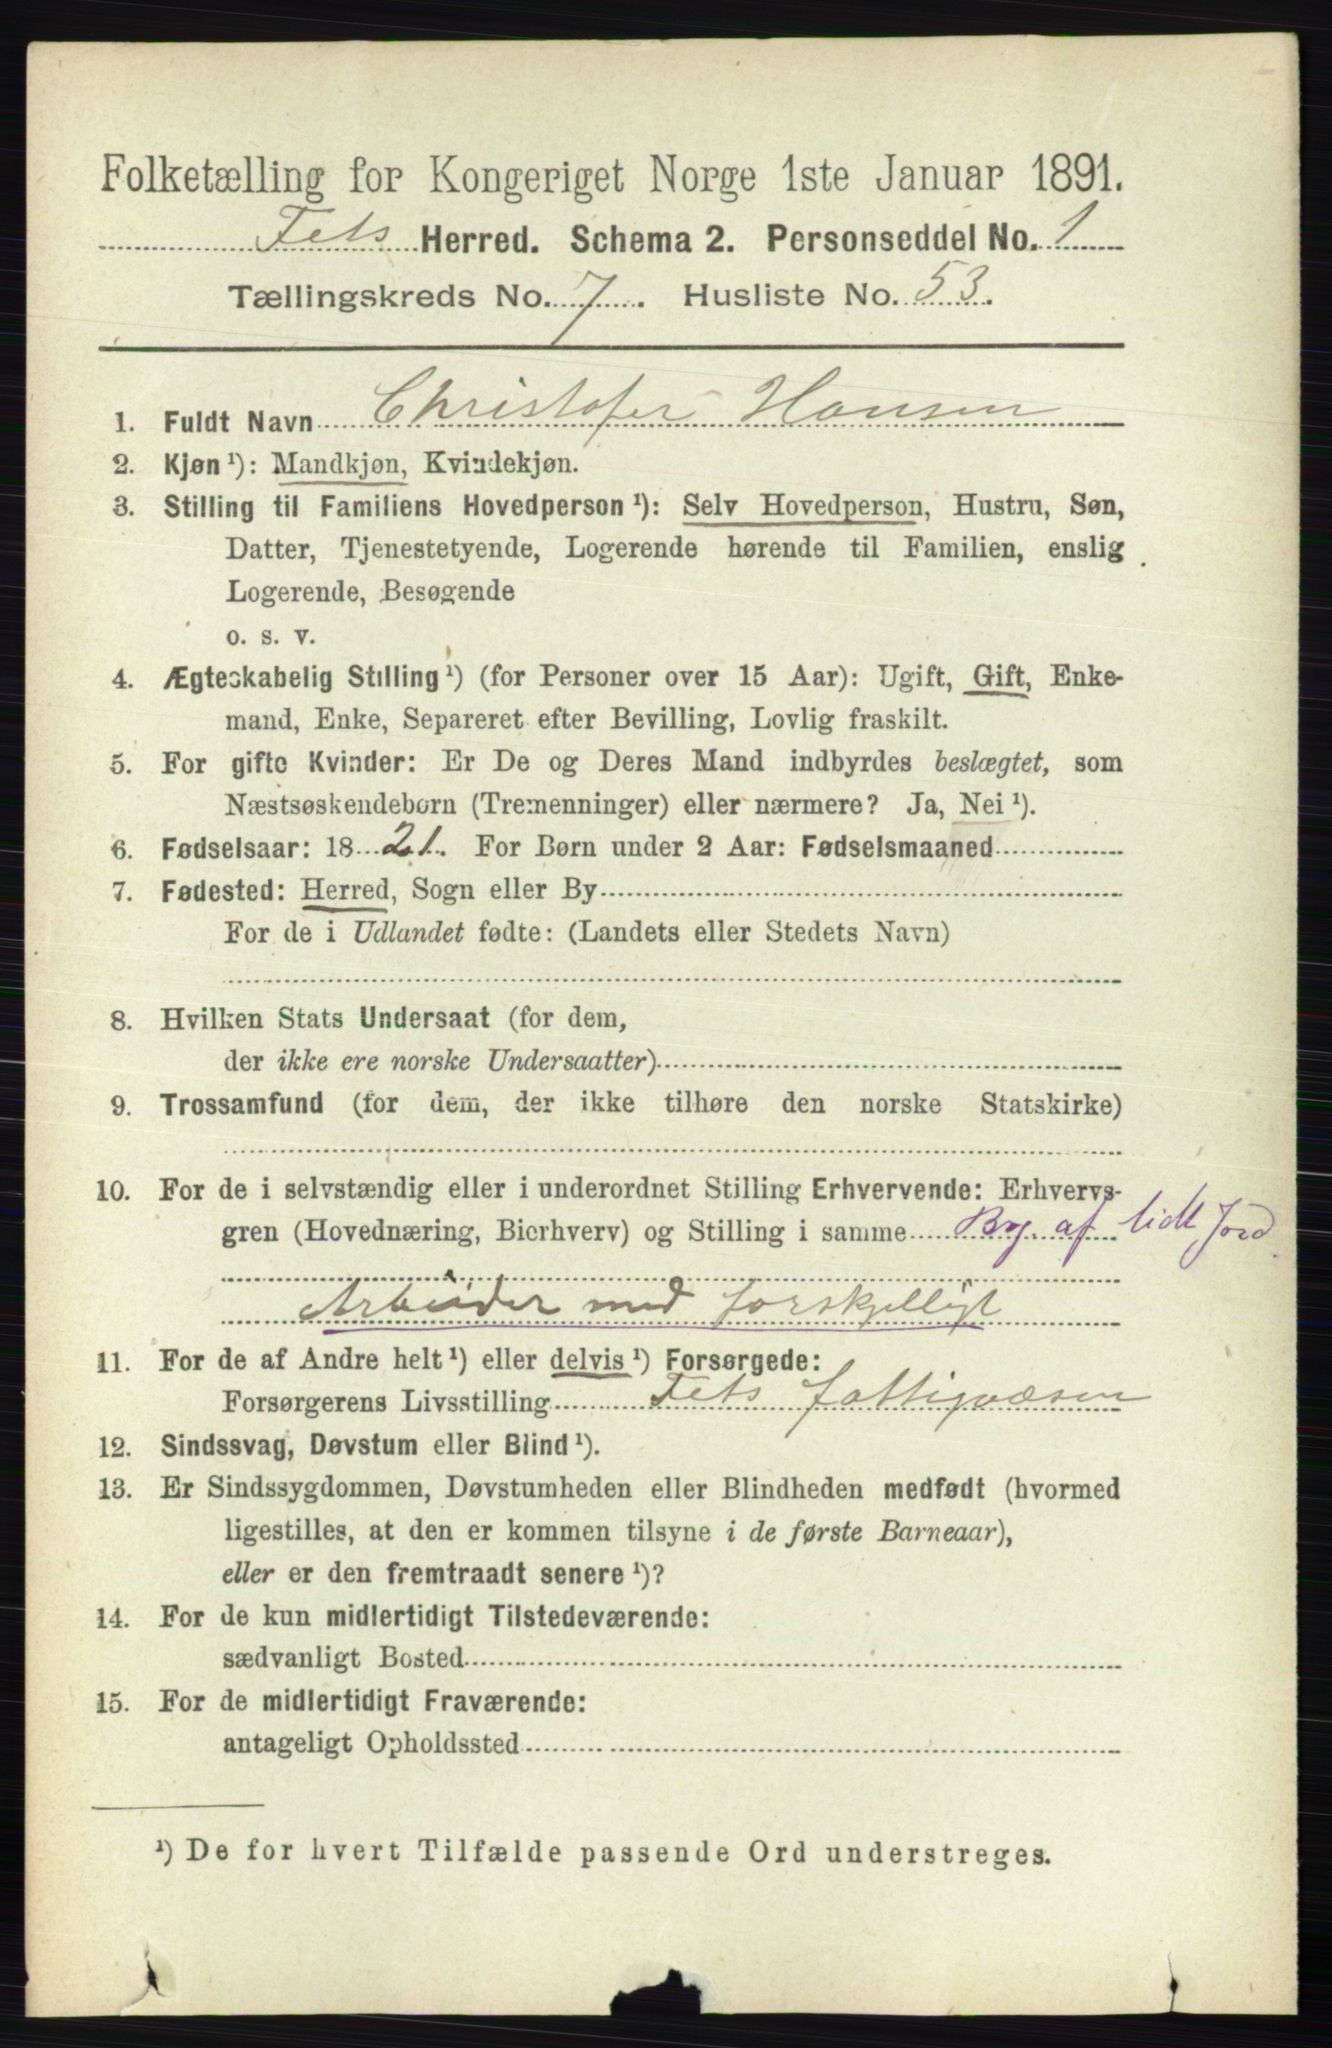 Folketælling for Kongeriget Norge 1ste Januar 1891.
Fets Herred. Schema 2. Personseddel No. 1
Tællingskreds No. 7. Husliste No. 53.
1. Fuldt Navn Christofer Hansen
2. Kjøn ¹): Mandkjøn, Kvindekjøn.
3. Stilling til Familiens Hovedperson ¹): Selv Hovedperson, Hustru, Søn,
Datter, Tjenestetyende, Logerende hørende til Familien, enslig
Logerende, Besøgende
o. s. v.
4. Ægteskabelig Stilling ¹) (for Personer over 15 Aar): Ugift, Gift, Enke-
mand, Enke, Separeret efter Bevilling, Lovlig fraskilt.
5. For gifte Kvinder: Er De og Deres Mand indbyrdes beslægtet, som
Næstsøskendebørn (Tremenninger) eller nærmere? Ja, Nei ¹).
6. Fødselsaar: 1821. For Børn under 2 Aar: Fødselsmaaned
7. Fødested: Herred, Sogn eller By
For de i Udlandet fødte: (Landets eller Stedets Navn)
8. Hvilken Stats Undersaat (for dem,
der ikke ere norske Undersaatter)
9. Trossamfund (for dem, der ikke tilhøre den norske Statskirke)
10. For de i selvstændig eller i underordnet Stilling Erhvervende: Erhvervs-
gren (Hovednæring, Bierhverv) og Stilling i samme Brg. af lidt Jord
Arbeider med forskjelligt
11. For de af Andre helt ¹) eller delvis ¹) Forsørgede:
Forsørgerens Livsstilling Fets fattigvæsen
12. Sindssvag, Døvstum eller Blind ¹).
13. Er Sindssygdommen, Døvstumheden eller Blindheden medfødt (hvormed
ligestilles, at den er kommen tilsyne i de første Barneaar),
eller er den fremtraadt senere ¹)?
14. For de kun midlertidigt Tilstedeværende:
sædvanligt Bosted
15. For de midlertidigt Fraværende:
antageligt Opholdssted
¹) De for hvert Tilfælde passende Ord understreges.